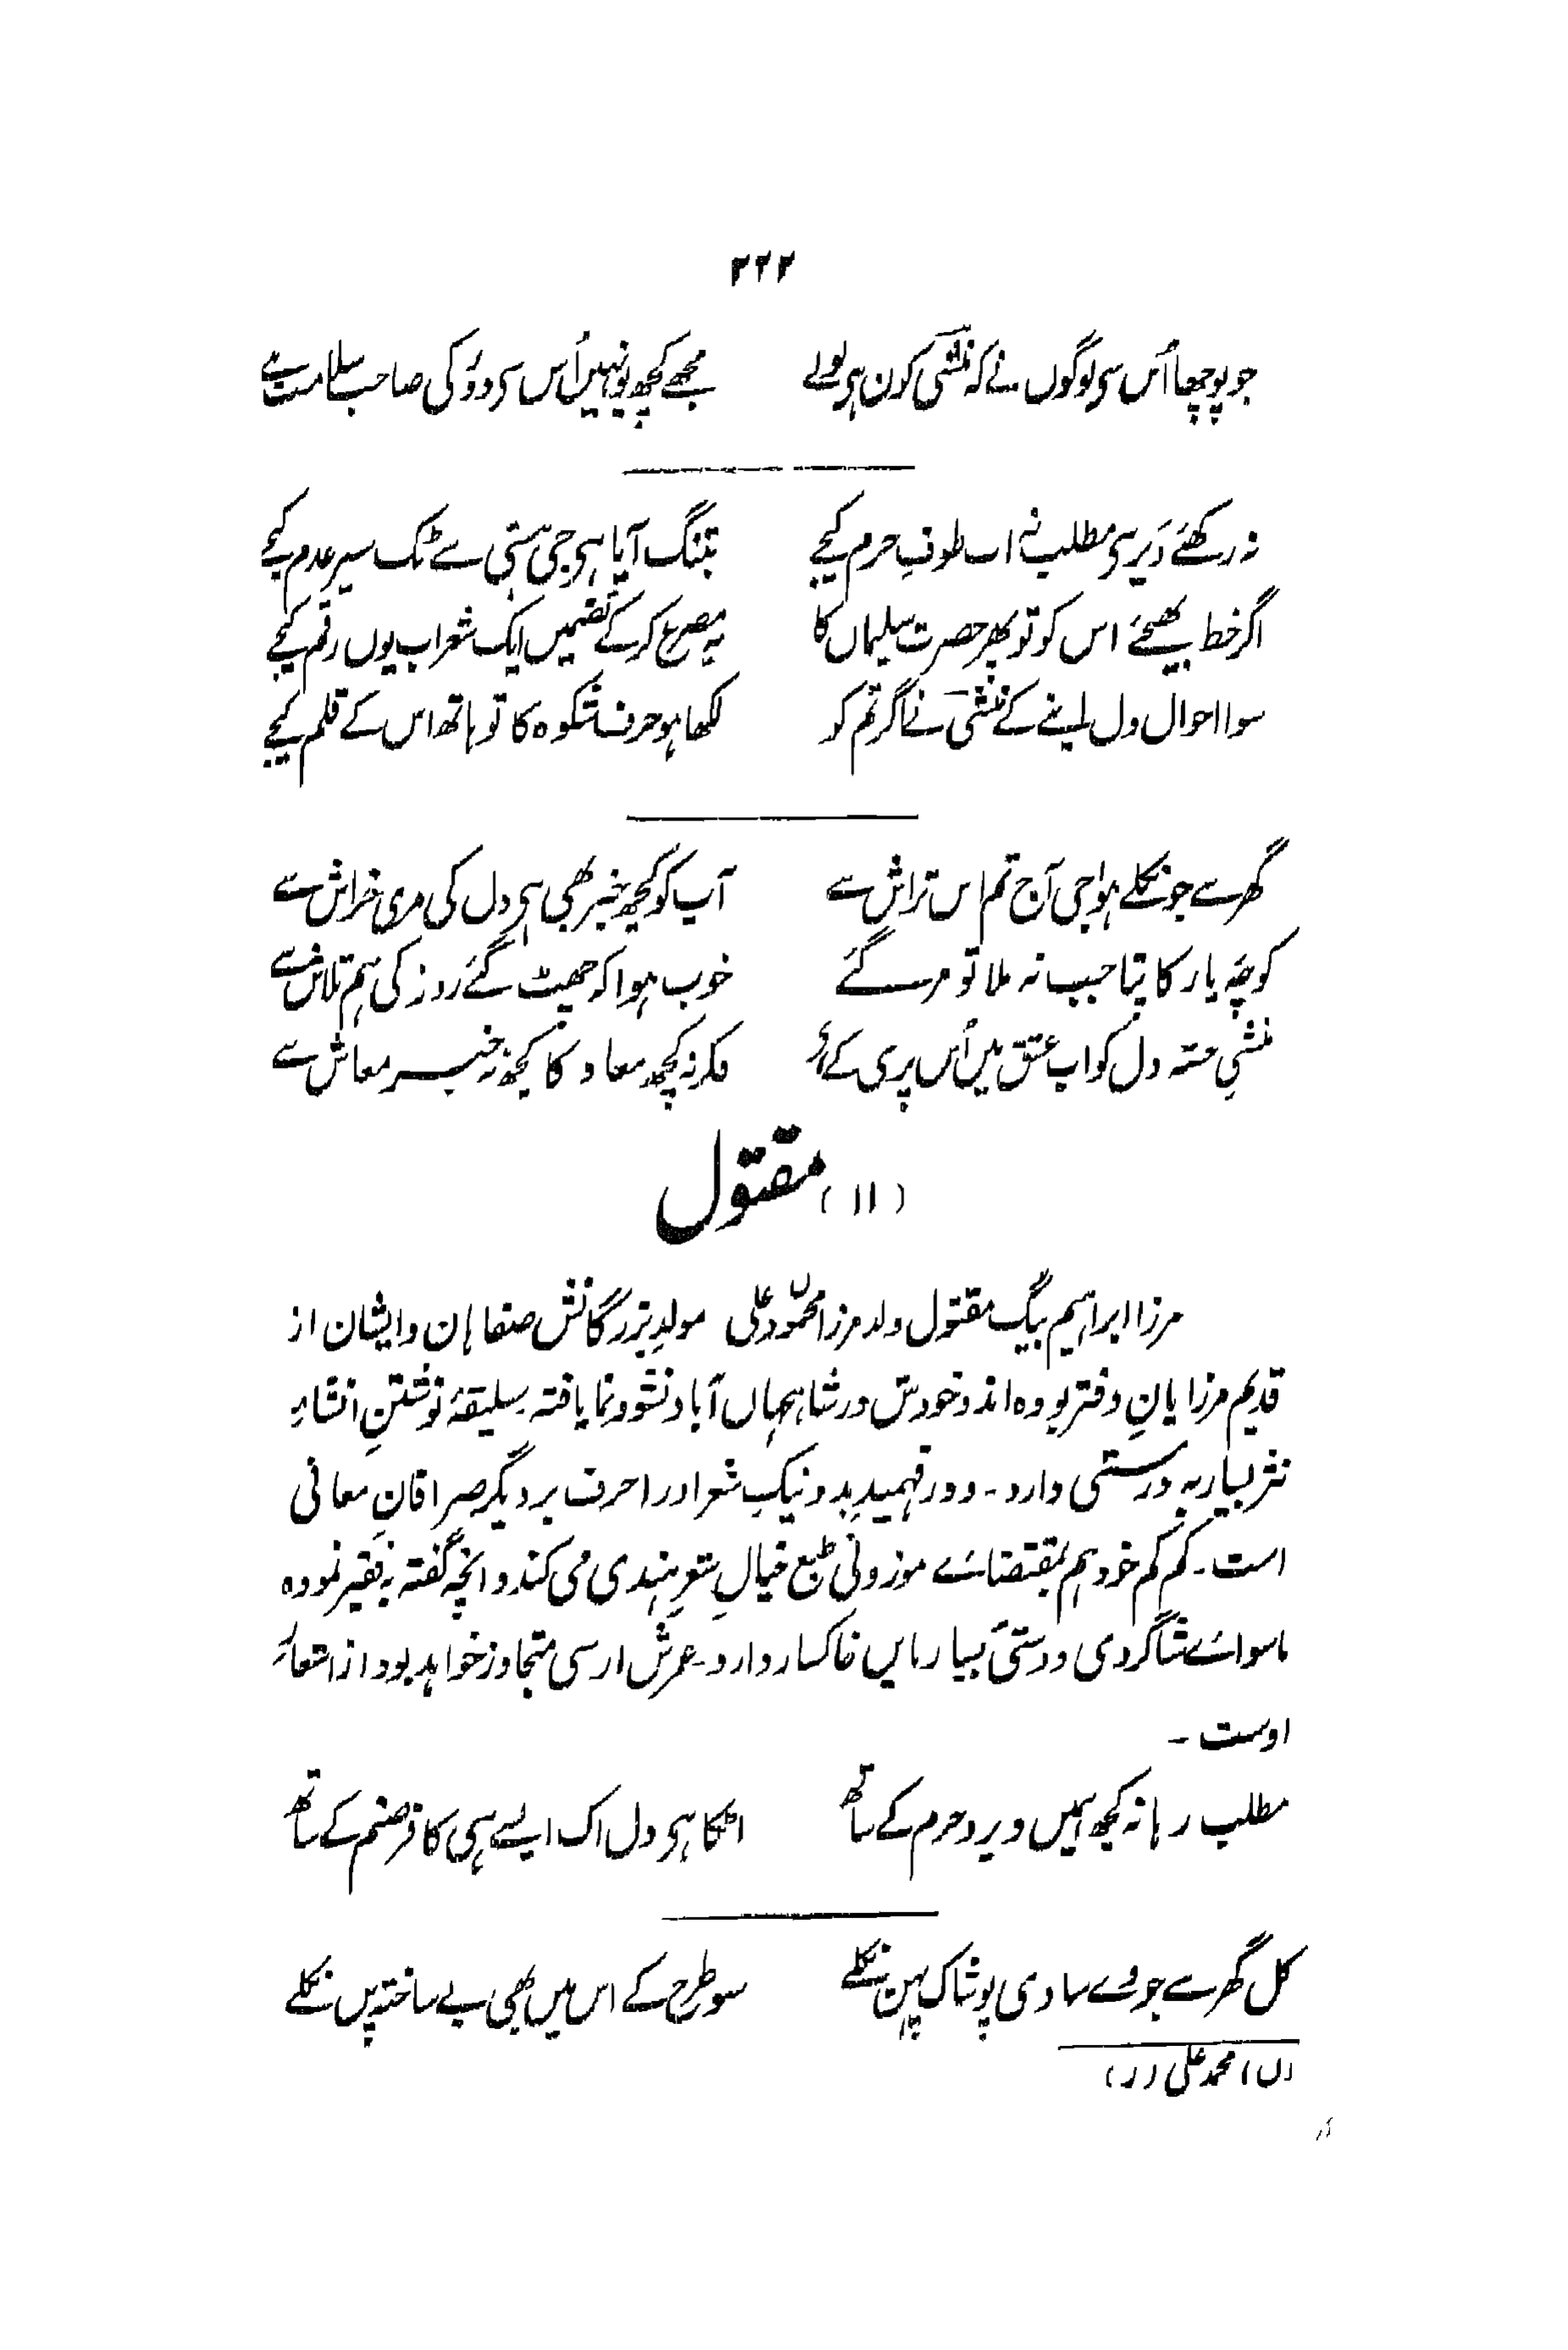 ۲۲۲
جو پوچھا اُس سی لوگوں نے کہ منشی کون ہی بولے مجھے کچھ یوں نہیں اُس سی دوُر کی صاحب سلامت ہے
نہ رکھئے دَیر سی مطلب نہ اب طوفِ حرم کیجے بتنگ آیا ہی جی ہستی سے ٹک سیرِ عدم کیجے
اگر خط بھیجئے اس کو تو پھر حضرت سلیماں کا یہ مصرع کر کے تضمیں ایک شعر اب یوں رقم کیجے
سوا احوال دل اپنے کے منشی نے اگر تم کو لکھا ہو حرف شکوہ کا تو ہاتھ اس کے قلم کیجے
گھر سے جو نکلے ہو اجی آج تم اس تراش سے آپ کو کچھ خبر بھی ہی دل کی مری خراش سے
کوچۂ یار کا پتا جب نہ ملا تو مر گئے خوب ہوا کہ چھٹ گئے روز کی ہم تلاش سے
منشیِ خستہ دل کو اب عشق میں اُس پری کے فکر نہ کچھ معاد کا کچھ نہ خبر معاش سے
(۱۱) مقتول
مرزا ابراہیم بیگ مقتول ولد مرزا محمود علیؔ مولدِ بزرگانش صفاہان و ایشان از
قدیم مرزایانِ دفتر بودہ اند و خودش در شاہجہاں آباد نشو و نما یافتہ سلیقۂ نوشتنِ انشاءِ
نثر بسیار بہ درستی دارد۔ و در فہمیدِ بد و نیکِ شعر او را حرف بر دیگر صرافانِ معانی
است۔ کم کم خود ہم بمقتضائے موزونیٔ طبع خیالِ شعرِ ہندی می کند و انچہ گفتہ بہ فقیر نمودہ
ماسوائے شاگردی دوستیٔ بسیار بایں خاکسار دارد۔ عمرش از سی متجاوز خواہد بود از اشعارِ
اوست ۔
مطلب رہا نہ کچھ ہمیں دیر و حرم کے ساتھ اٹکا ہی دل اک ایسے ہی کافر صنم کے ساتھ
کل گھر سے جو وے سادی پوشاک پہن نکلے سو طرح کے اس میں بھی بے ساختہ پن نکلے
(ل) محمد علی (ر)